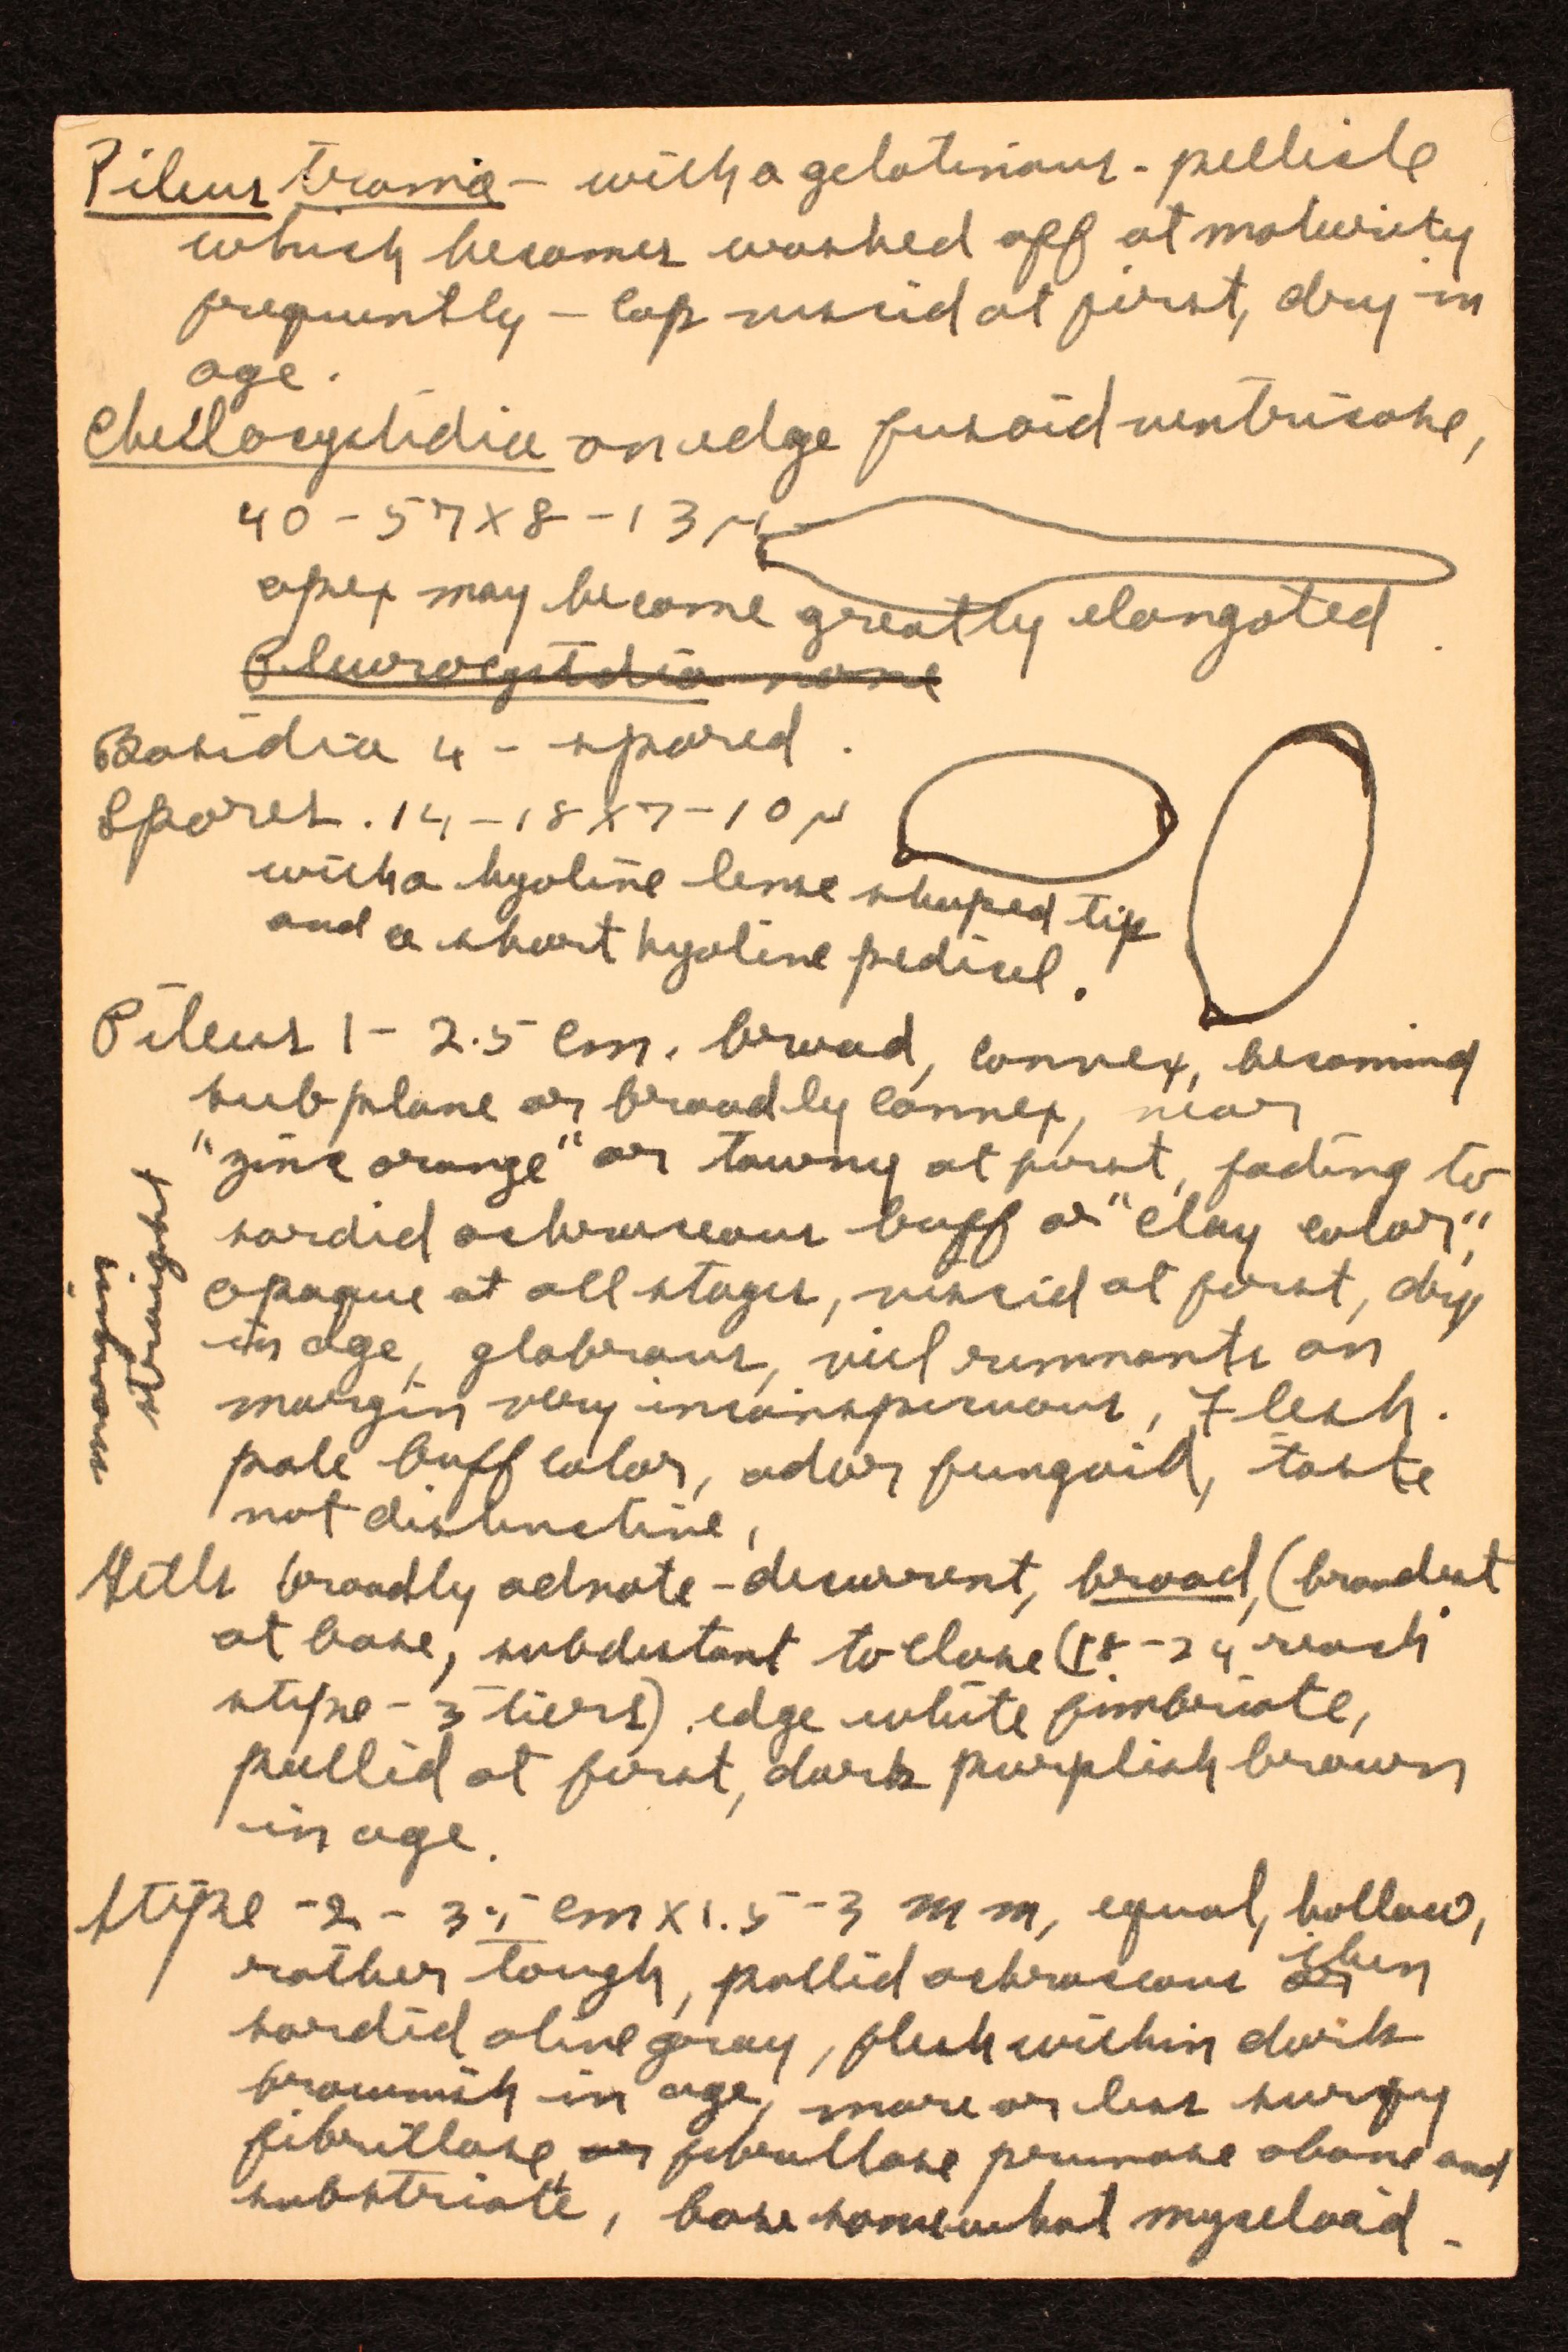 Pileus trama - with a gelatinous - pellicle
which becomes washed off at maturity
frequently - cap viscid at first, dry in
age.
Cheilocystidia on edge fusoid ventricose,
40 - 57 X 8 - 13 μ
apex may become greatly elongated.
Pleurocystidia none
Basidia 4 - spored.
Spores. 14 - 18 X 7 - 10 μ
with a hyaline lense shaped tip
and a short hyaline pedicel.
Pileus 1 - 2.5 cm. broad, convex, becoming
subplane or broadly convex, near
"zinc orange" or tawny at first, fading to
sordid ochraceous buff or "clay color",
opaque at all stages, viscid at first, dry
in age, glabrous, veil remnants on
margin very inconspicuous, Flesh.
pale buff color, odor fungoid, taste
not distinctive,
straight
Gills broadly adnate - decurrent, broad, (broadest
at base, subdistant to close (18 - 24 reach
stipe - 3 tiers). edge white fimbriate,
pallid at first, dark purplish brown
in age.
Stipe - 2 - 3.5 cm X 1.5 - 3 mm, equal, hollow,
rather tough, pallid ochraceous or then
sordid olive gray, flesh within dark
brownish in age, more or less scurfy
fibrillose or fibrillose pruinose above and
substriate, base somewhat myceloid -